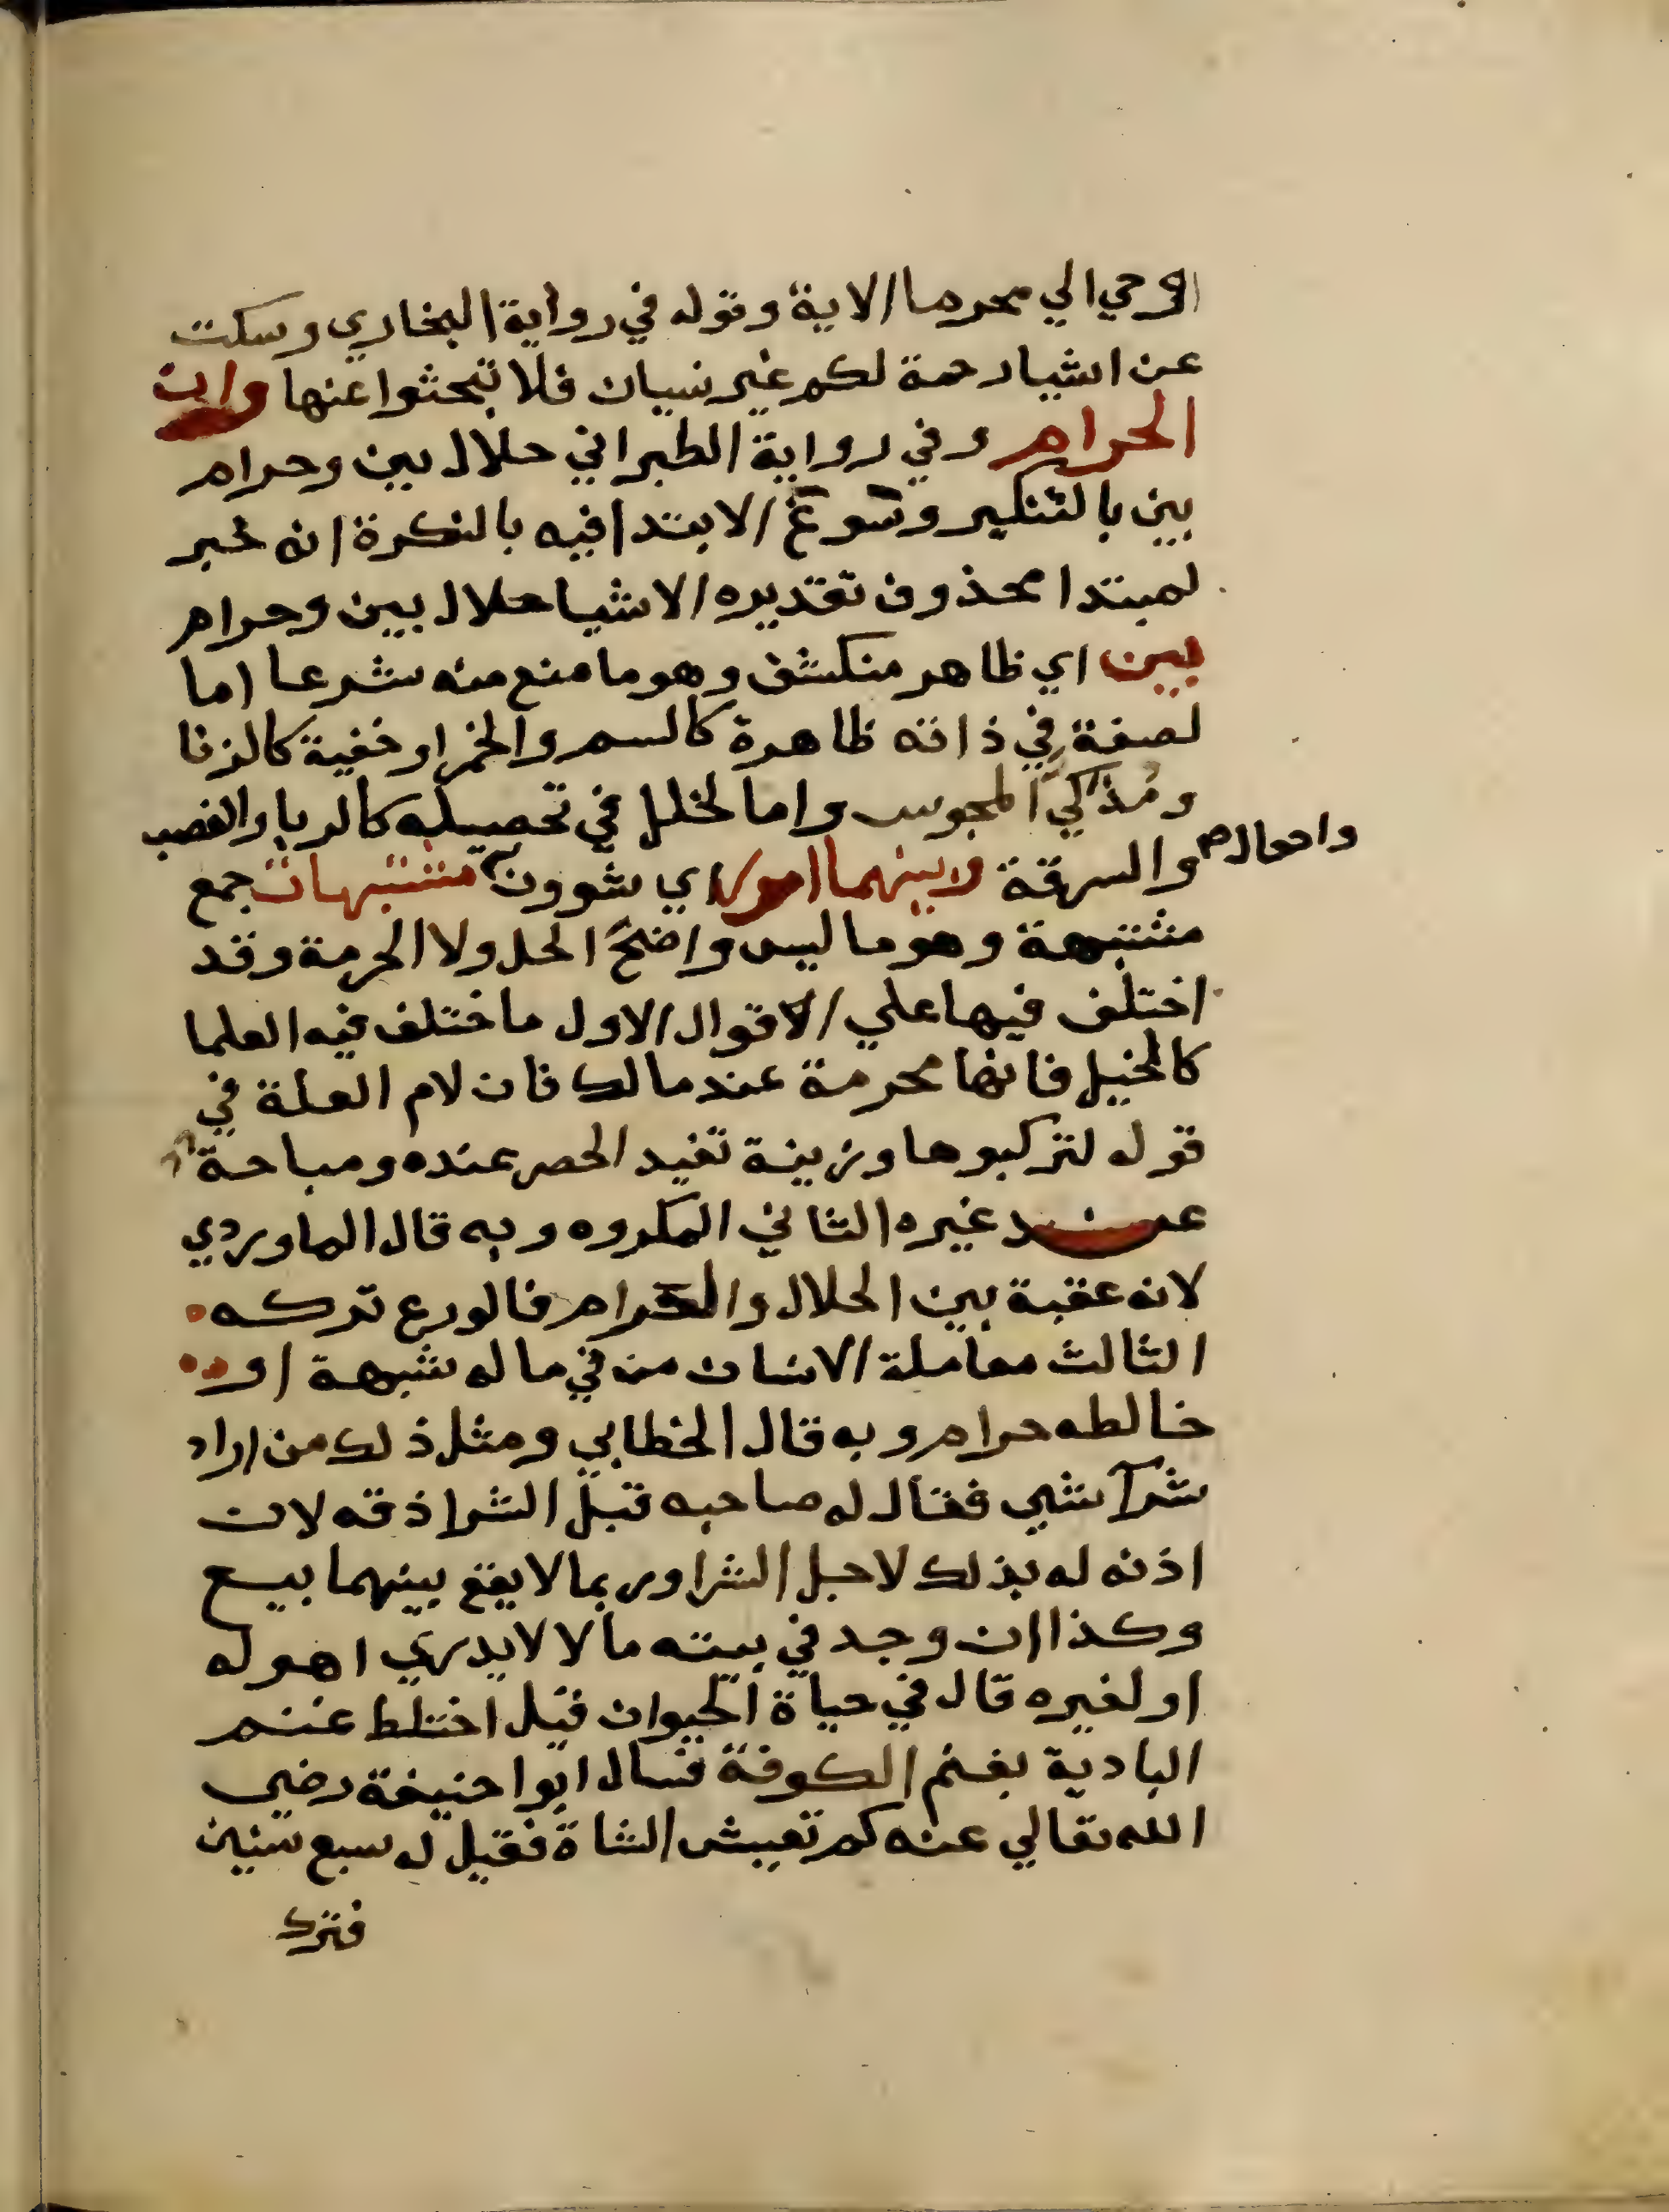 اوحي الي محرما الاية وقوله في رواية البخاري وسكت
عن اشيا رحمة لكم غير نسيان فلا تبحثوا عنها وان
الحرام وفي رواية الطبراني حلال بين وحرام
بين بالتنكير وسوغ الابتدا فيه بالنكرة انه خبر
لمبتدا محذوف تقديره الاشيا حلال بين وحرام
بين اي ظاهر منكشف وهو ما منع منه شرعا اما
لصفة في ذاته ظاهرة كالسم والخمر او خفية كالزنا
ومذكي المجوس واما لخلل في تحصيله كالربا والغصب
والسرقة وبينهما امور اي شوون مشتبهات جمع
واحوال صح
مشتبهة وهو ما ليس واضح الحل ولا الحرمة وقد
اختلف فيها علي الاقوال الاول ما اختلف فيه العلما
كالخيل فانها محرمة عند مالك فان لام العلة في
قوله لتركبوها وزينة تفيد الحصر عنده ومباحة
عند غيره الثاني المكروه وبه قال الماوردي
لانه عقبة بين الحلال والحرام فالورع تركه
الثالث معاملة الانسان من في ماله شبهة او
خالطه حرام وبه قال الخطابي ومثل ذلك من اراد
شرآ شي فقال له صاحبه قبل الشرا ذقه لان
اذنه له بذلك لاجل الشرا وربما لا يقع بينهما بيع
وكذا ان وجد في بيته مالا لا يدري اهو له
او لغيره قال في حياة الحيوان قيل اختلط غنم
البادية بغنم الكوفة فسال ابوا حنيفة رضي
الله تعالي عنه كم تعيش الشاة فقيل له سبع سنين
فترك